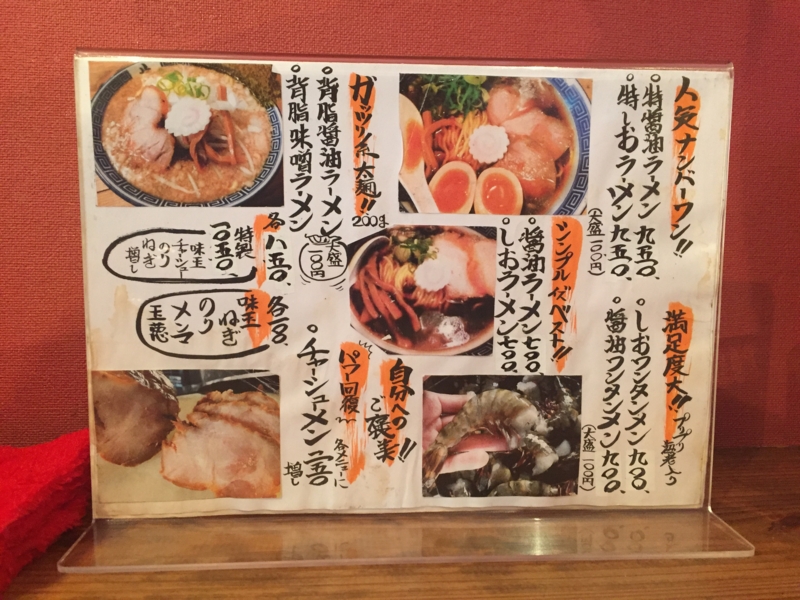 人気ナンバーワン!!
○特醤油ラーメン 九五〇、
○特しおラーメン 九五〇、
(大盛一〇〇円)
満足度大!! プリプリ海老入り
○しおワンタンメン 九〇〇、
○醤油ワンタンメン 九〇〇、
(大盛一〇〇円)
シンプルイズベスト!!
○醤油ラーメン 七〇〇、
○しおラーメン 七〇〇、
ガッツリ系太麺!! 200g
○背脂醤油ラーメン
○背脂味噌ラーメン
大盛一〇〇円
各 八五〇、
特製 一〇五〇、
味玉
チャーシュー
のり
ねぎ
増し
各一〇〇、
味玉
ねぎ
のり
メンマ
自分へのご褒美!!
パワー回復〜
○チャーシューメン
各メニューに
増し